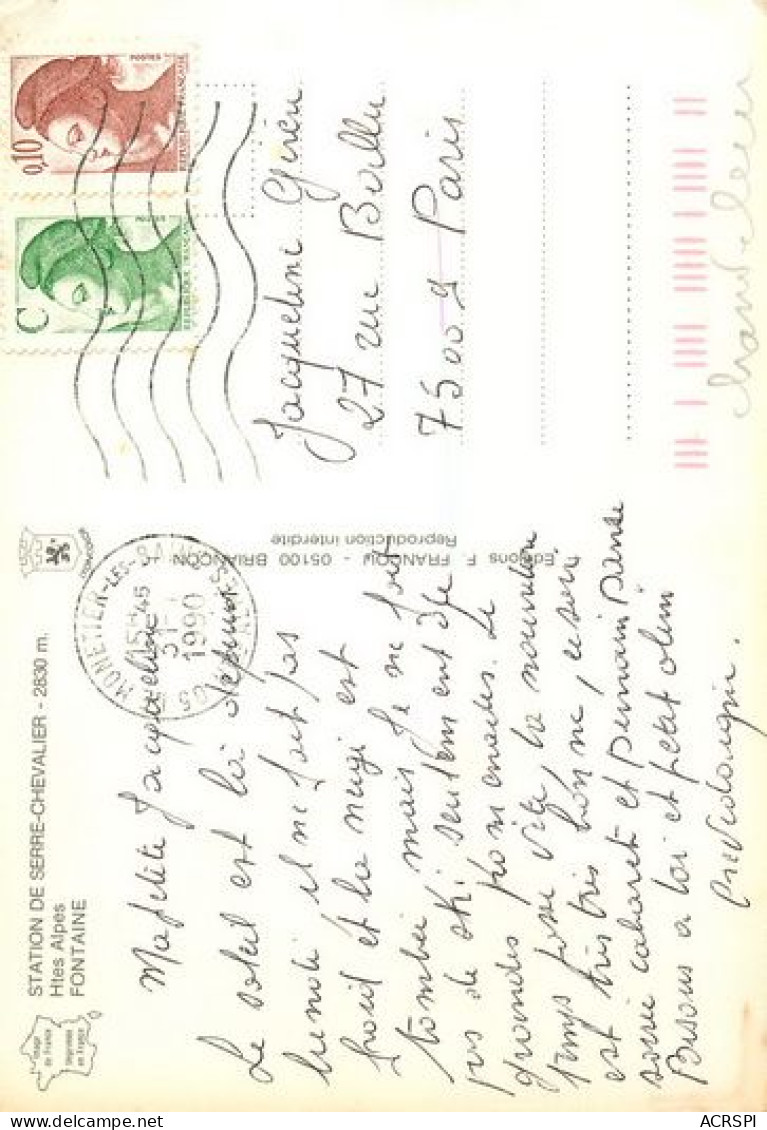 STATION DE SERRE-CHEVALIER - 2830 m.
Htes Alpes
FONTAINE
L'image de France
Imprimée en France
Ma petite Jacqueline
Le soleil est là depuis
lundi il ne fait pas
froid et la neige est
tombée mais je ne fait
pas de ski seulement de
grandes promenades. Le
temps passe vite, la nourriture
est très très bonne, ce soir
soirée cabaret et demain danse
Bisous a toi et petit
Editions F. FRANCOU - 05100 BRIANÇON
Reproduction interdite
MONETIER-LES-BAINS
15H45
31-
1990
05 HTES ALPES
0,10
POSTES
REPUBLIQUE FRANÇAISE
C
REPUBLIQUE FRANÇAISE
Jacqueline
27 rue
75009 Paris
ACRSPI